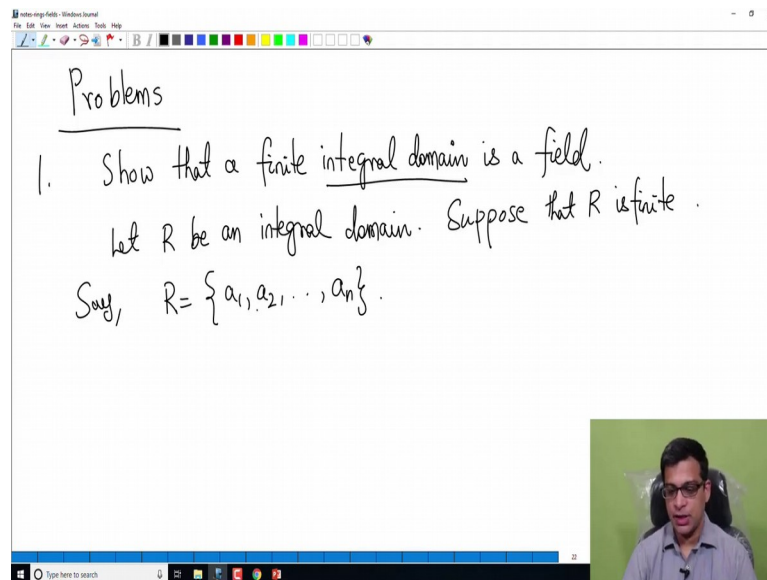 notes-rings-fields - Windows Journal
File Edit View Insert Actions Tools Help
Problems
1. Show that a finite integral domain is a field.
Let R be an integral domain. Suppose that R is finite.
Say, R = {a₁, a₂, ..., aₙ}.
22
Type here to search